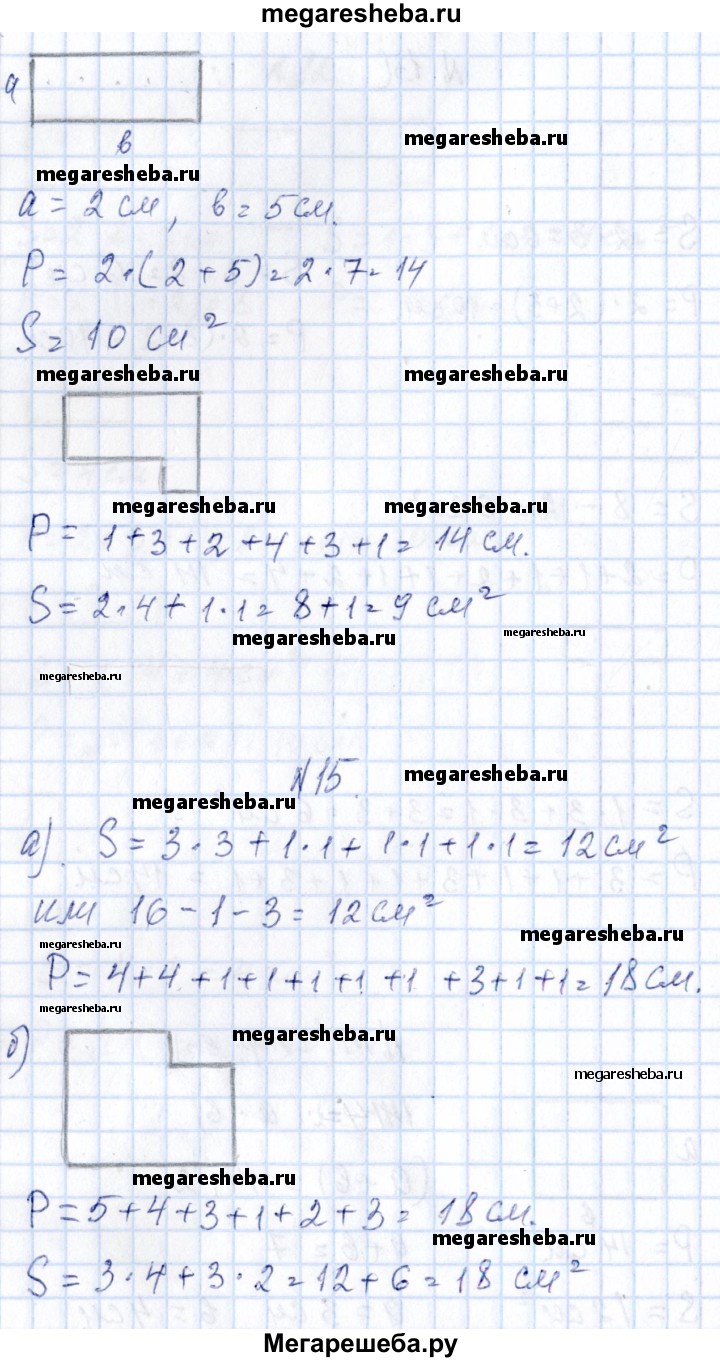 megaresheba.ru
a
в
megaresheba.ru
megaresheba.ru
a = 2 см, в = 5 см.
P = 2·(2+5) = 2·7 = 14
S = 10 см²
megaresheba.ru megaresheba.ru
megaresheba.ru megaresheba.ru
P = 1+3+2+4+3+1 = 14 см.
S = 2·4+1·1 = 8+1 = 9 см²
megaresheba.ru megaresheba.ru
megaresheba.ru
N 15.
megaresheba.ru
megaresheba.ru
а). S = 3·3+1·1+1·1+1·1 = 12 см²
или 16-1-3 = 12 см²
megaresheba.ru megaresheba.ru
P = 4+4+1+1+1+1+1+3+1+1 = 18 см.
megaresheba.ru
б)
megaresheba.ru
megaresheba.ru
megaresheba.ru
P = 5+4+3+1+2+3 = 18 см.
megaresheba.ru
S = 3·4+3·2 = 12+6 = 18 см²
Мегарешеба.ру